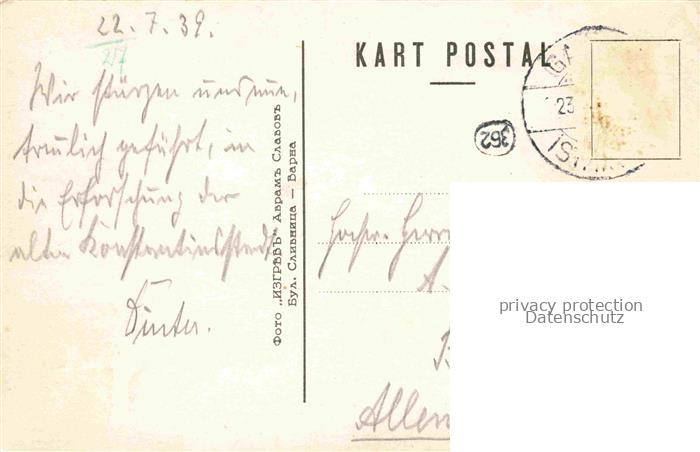 22.7.39.
2/7
Wir stürzen uns nun,
treulich geführt, in
die Erforschung der
alten Konstantinsstadt
Dinter.
Фото „ИЗГРѢВЪ“ Аврамъ Славовъ
Бул. Сливница — Варна
KART POSTAL
GA
23
ISI
362
Herrn
A.
Allem
privacy protection
Datenschutz